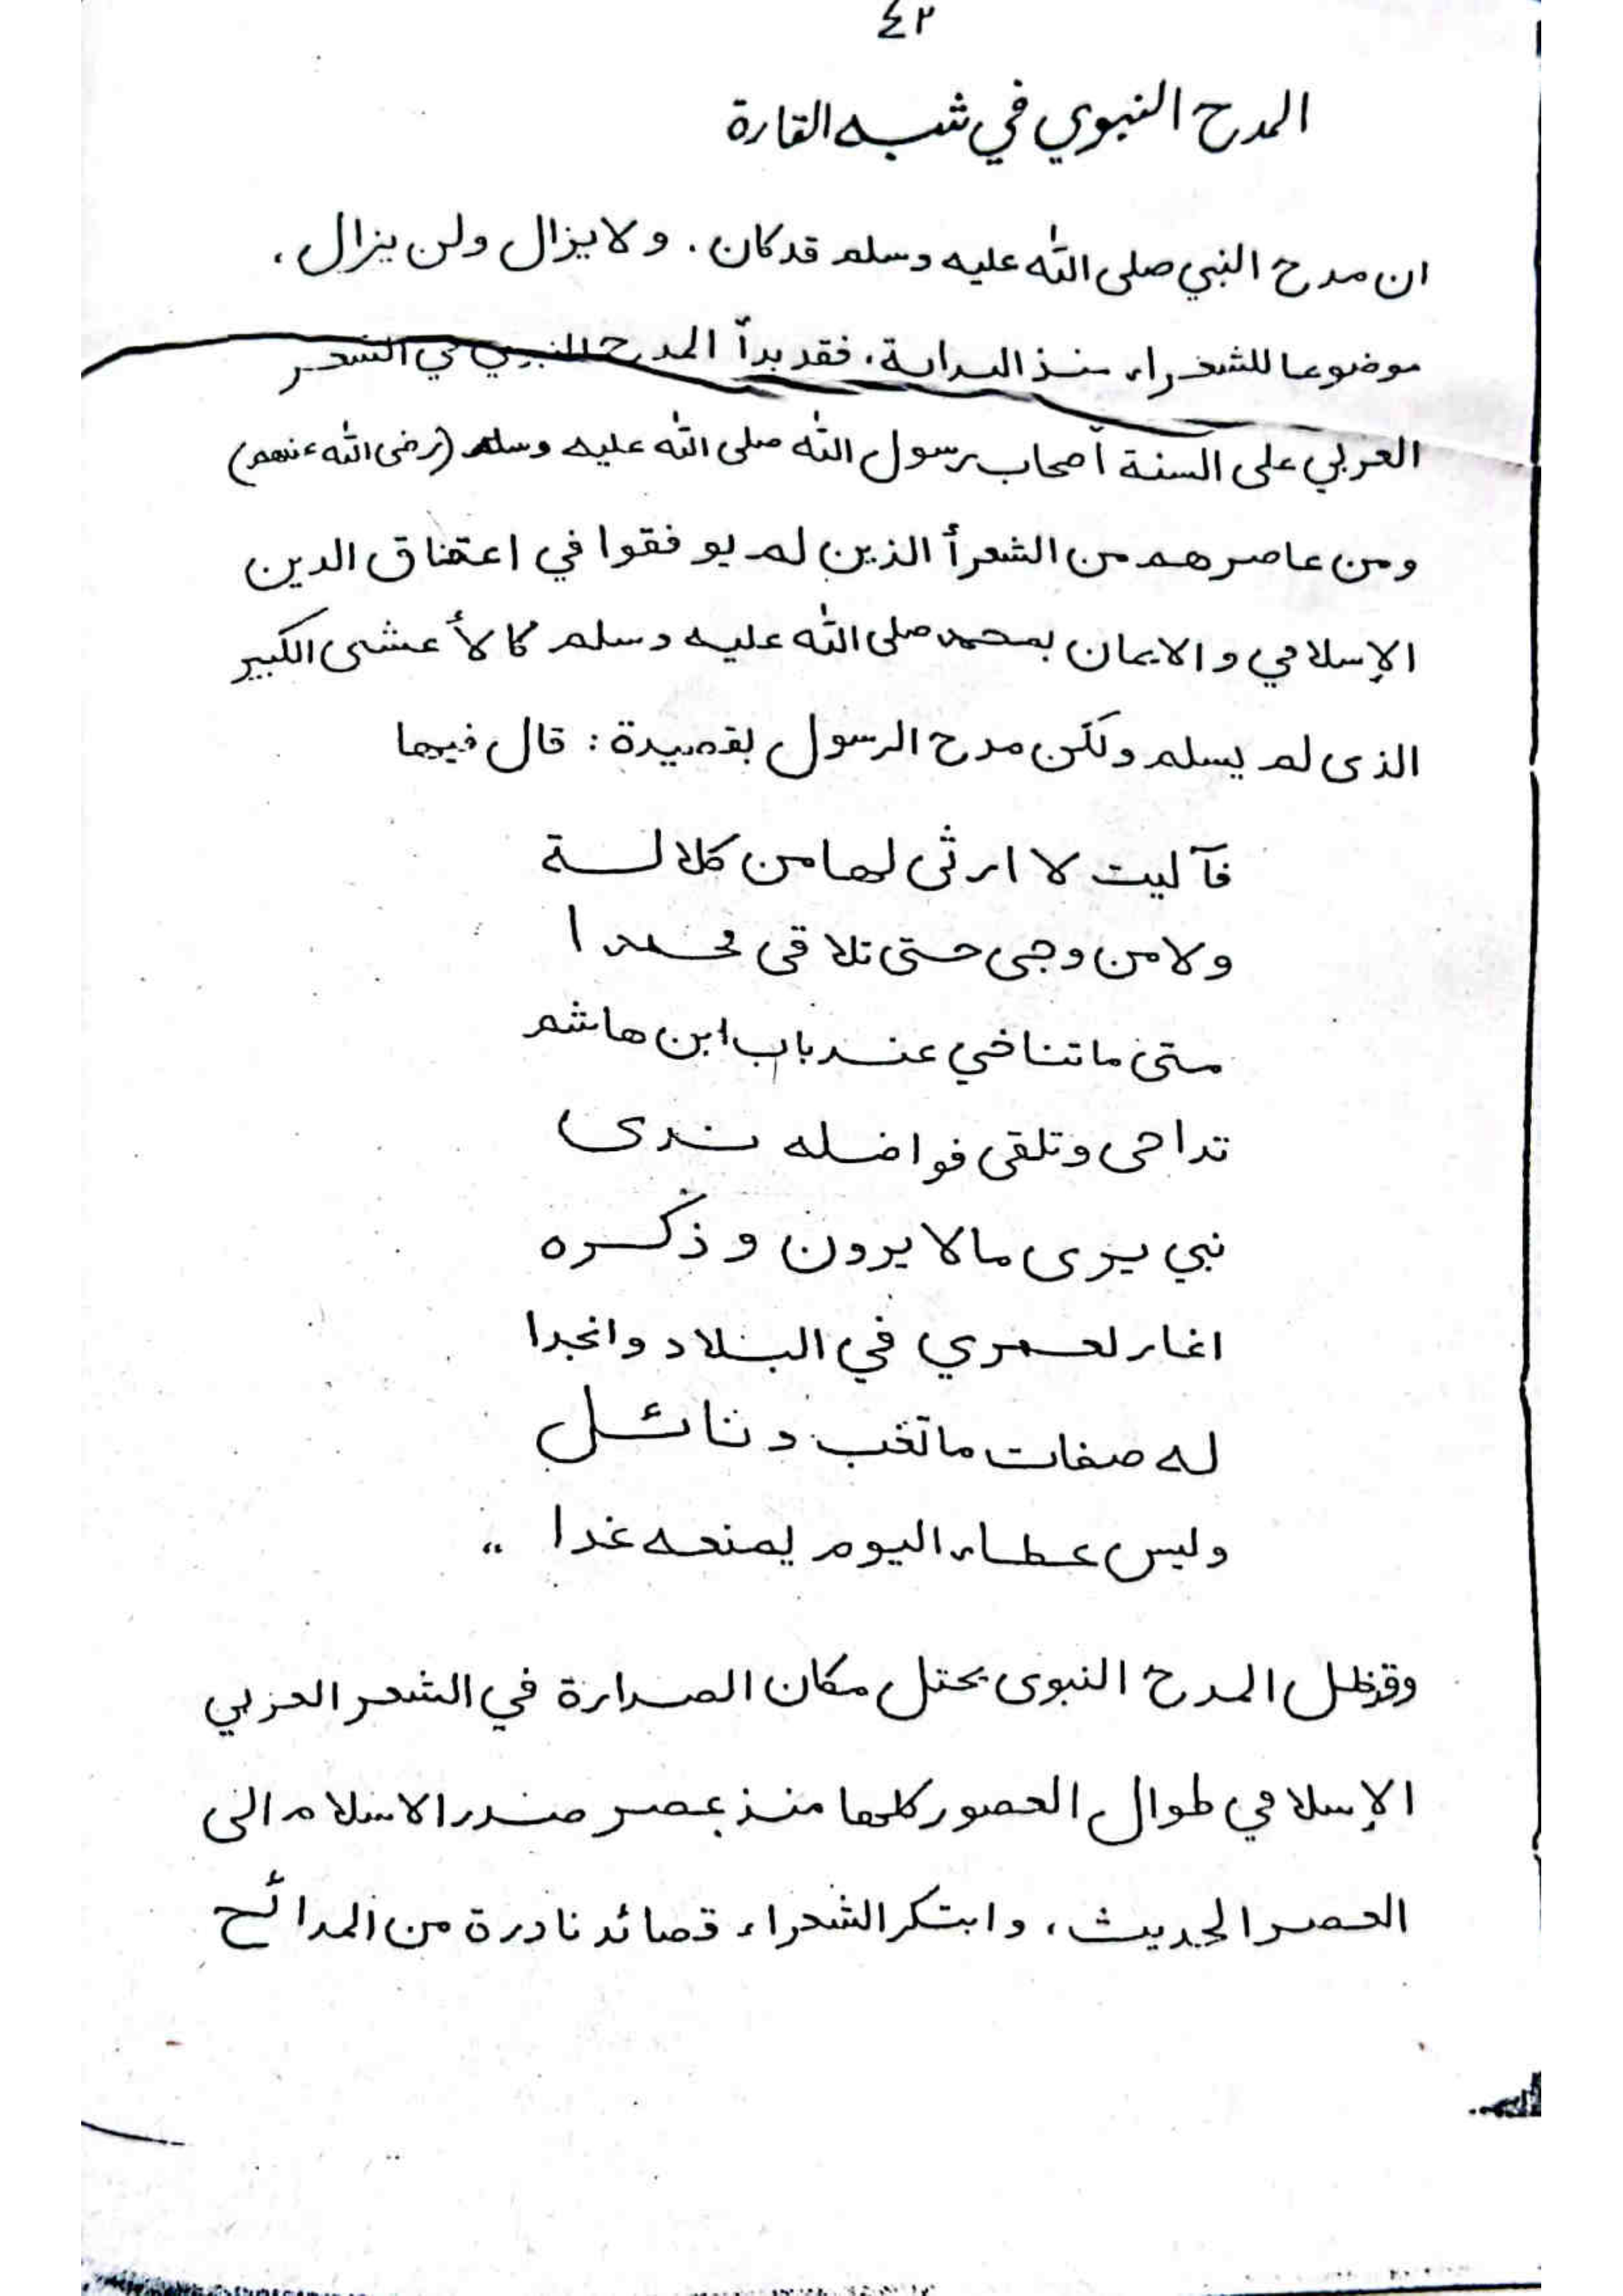 ٤٢
المدح النبوي في شبه القارة
ان مدح النبي صلى الله عليه وسلم قد كان . ولا يزال ولن يزال ،
موضوعا للشعراء منذ البداية، فقد بدأ المدح النبوي في الشعر
العربي على السنة أصحاب رسول الله صلى الله عليه وسلم (رضى الله عنهم)
ومن عاصرهم من الشعرأ الذين لم يوفقوا في اعتناق الدين
الإسلامي والايمان بمحمد صلى الله عليه وسلم كالأعشى الكبير
الذى لم يسلم ولكن مدح الرسول بقصيدة : قال فيها
فآليت لا ارثى لها من كلالة
ولا من وجى حتى تلاقى محمدا
متى ما تناخي عند باب ابن هاشم
تراحى وتلقى فواضله ندى
نبي يرى مالا يرون وذكره
اغار لعمري في البلاد وانجدا
له صفات ما تغب ونائل
وليس عطاء اليوم يمنعه غدا "
وقد ظل المدح النبوى يحتل مكان الصدارة في الشعر العربي
الإسلامي طوال العصور كلها منذ عصر صدر الاسلام الى
العصر الحديث، وابتكر الشعراء قصائد نادرة من المدائح